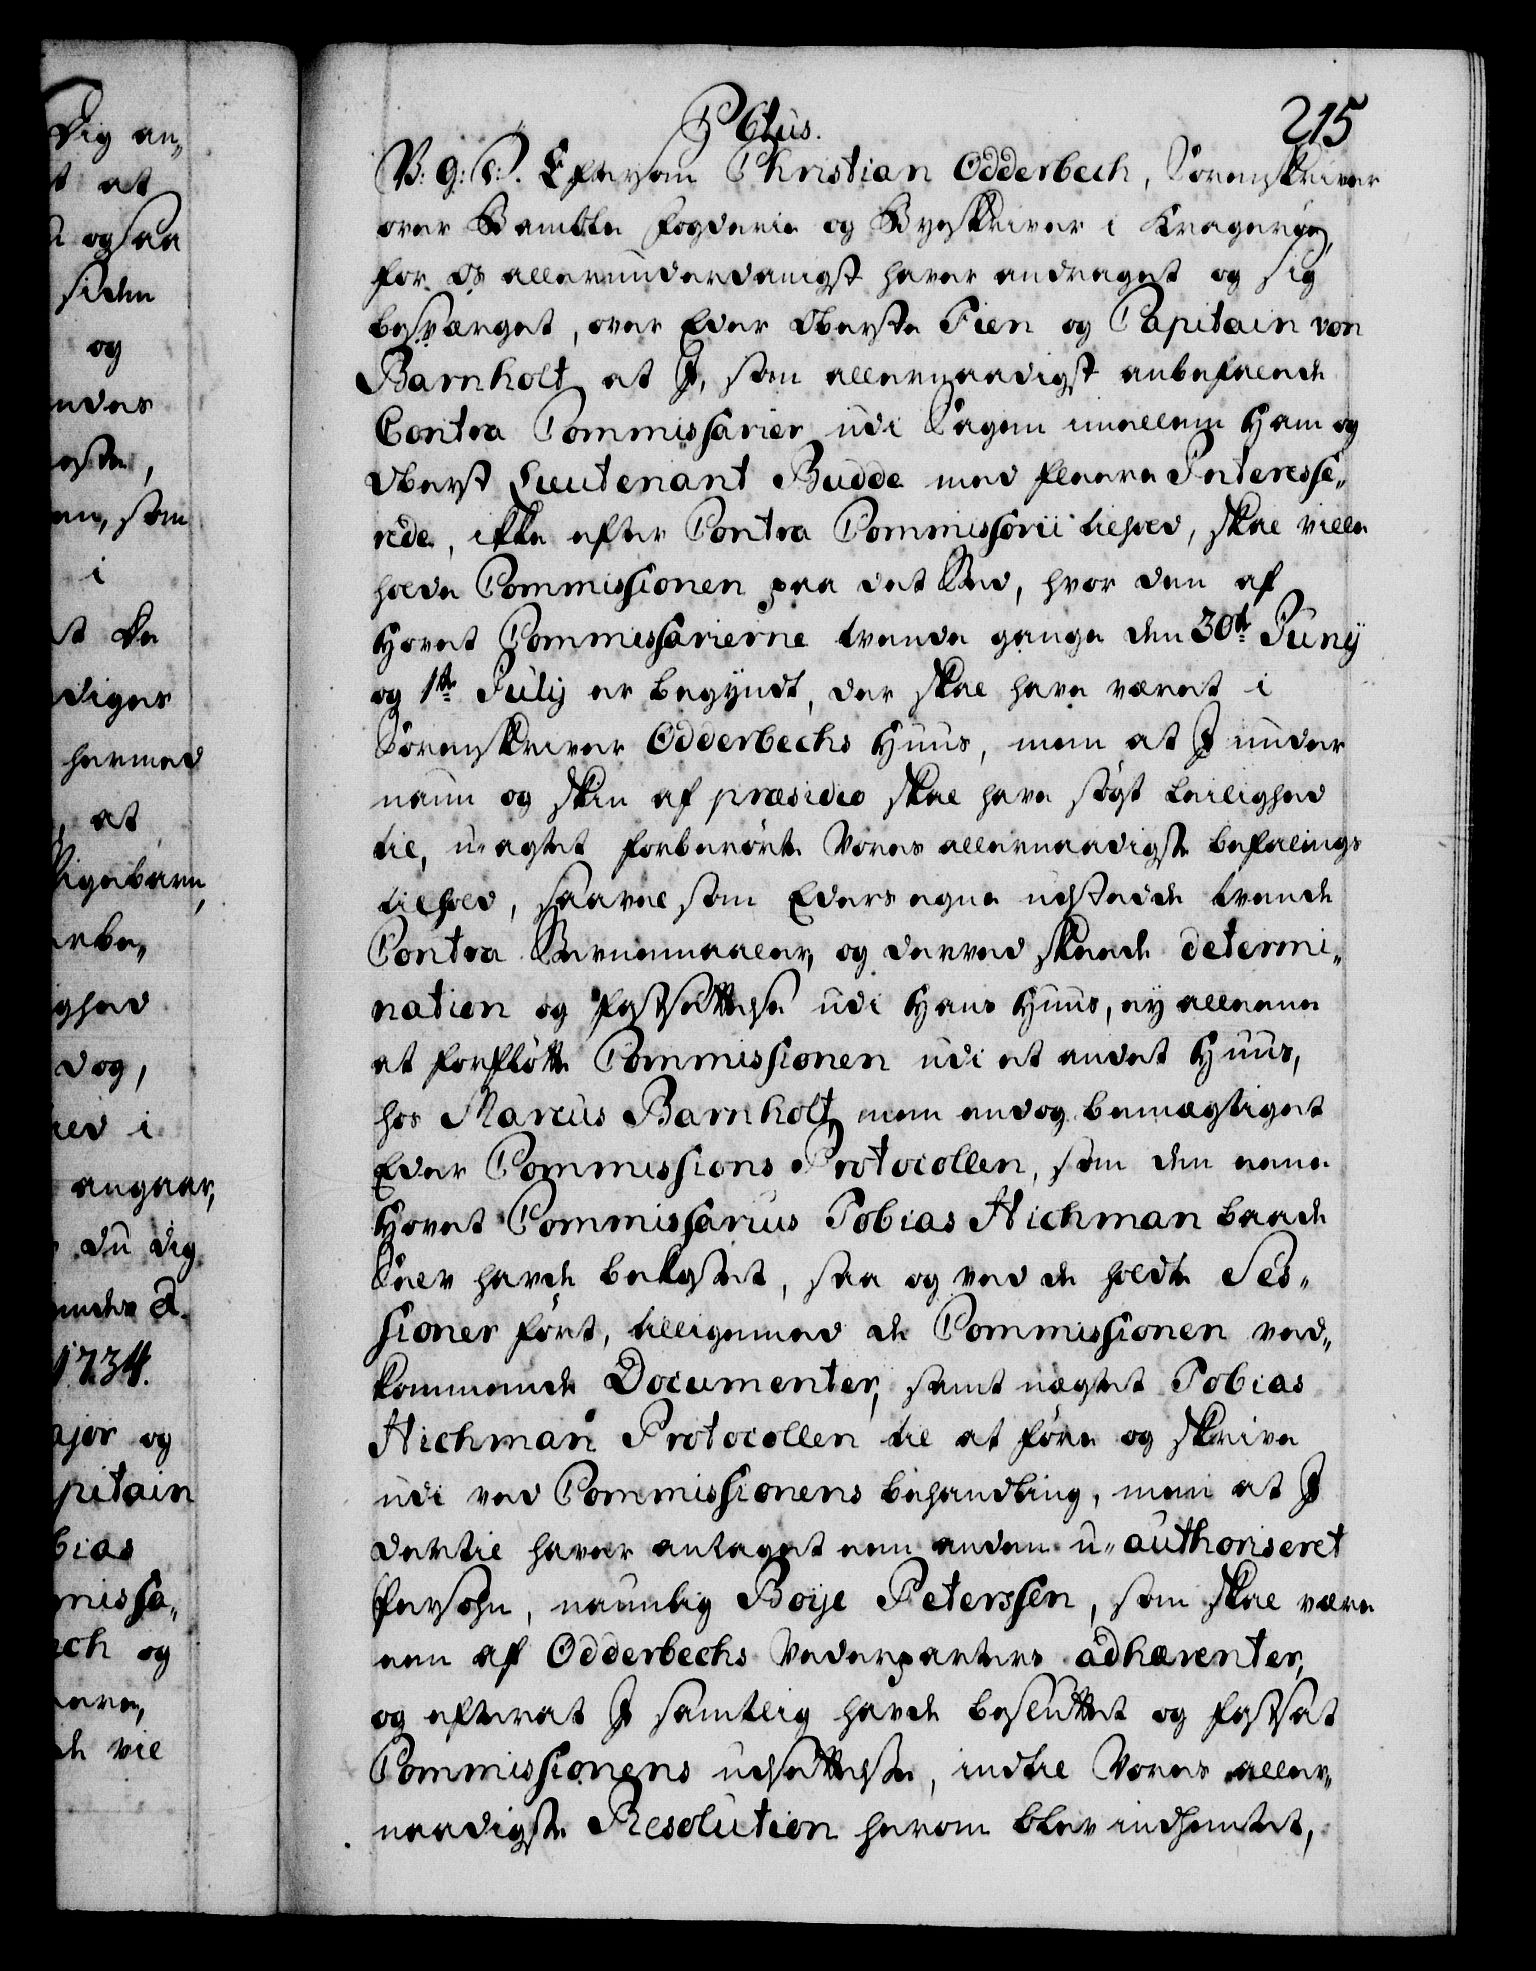 215
C 6tus.
V: G: T:. Eftersom Christian Odderbech, Sorenskriver
over Bamble fogderie og Byeskriver i Kragerøe,
for os allerunderdanigst haver andraget og sig
besværget, over Eder Oberste Fien og Capitain von
Barnholt, at I, som allernaadigst anbefalede
Contra Commissarier udi Sagen imellem Ham og
Oberst Lieutenant Budde med fleere Interesse„
rede, ikke efter Contra Commissorii tilhold, skal ville
holde Commissionen paa det Sted, hvor den af
Hovet Commissarierne tvende gange den 30te Junÿ
og 1te Julÿ er begyndt, der skal have været i
Sorenskriver Odderbechs Huus, men at I under
navn og skin af præsidio skal have søgt Leilighed
til, u-agtet forberørte Vores allernaadigste befalings
tilhold, saavel som Eders egne udstædde tvende
Contra Stævnemaaler, og derved skeede determi„
nation og fastsættelse udi Hans Huus, ey alleene
at forfløtte Commissionen udi et andet Huus,
hos Marcus Barnholt, men endog bemægtiget
Eder Commissions Protocollen, som den eene
Hovet Commissarius Tobias Hichman baade
Selv havde bekostet, saa og ved de holdte Ses„
sioner ført, tilligemed de Commissionen ved„
kommende Documenter, samt nægtet Tobias
Hichman Protocollen til at føre og skrive
udi ved Commissionens behandling, men at I
dertil haver antaget een anden u-authoriseret
Persohn, navnlig Boije Peterssen, som skal være
een af Odderbechs Vederparters adhærenter,
og efterat I samtlig havde besluttet og fastsat
Commissionens udsættelse, indtil Vores aller„
naadigste Resolution herom blev indhentet,
Dig an„
t at
ogsaa
siden
og
som
i
de
diges
hermed
at
Pigebarn,
ghed
dog,
i
angaar,
du dig
1734.
ajor og
pitain
bias
missa„
ech og
vil